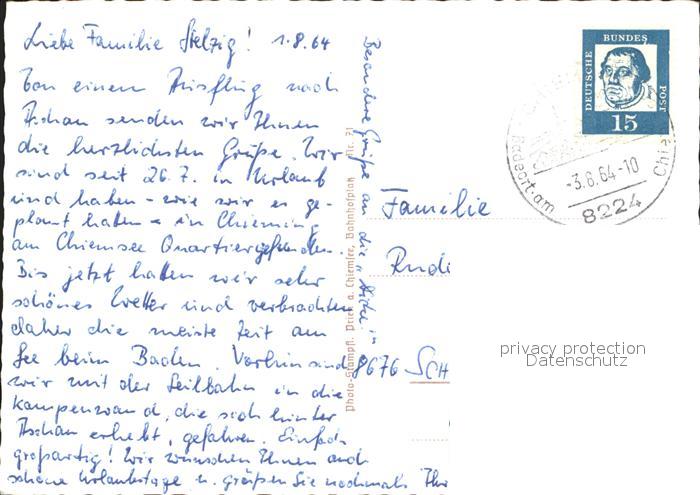 Liebe Familie Stelzig! 1.8.64
Von einem Ausflug nach
Aschau senden wir Ihnen
die herzlichsten Grüße. Wir
sind seit 26.7. in Urlaub
und haben - wie wir es ge-
plant hatten - in Chieming
am Chiemsee Quartier gefunden.
Bis jetzt hatten wir sehr
schönes Wetter und verbrachten
daher die meiste Zeit am
See beim Baden. Vorhin sind
wir mit der Seilbahn in die
Kampenwand, die sich hinter
Aschau erhebt, gefahren. Einfach
großartig! Wir wünschen Ihnen auch
schöne Urlaubstage u. grüßen Sie nochmals Ihr
Besondere Grüße an die
Photo-Stumpfl, Prien a. Chiemsee, Bahnhofplatz Nr. 21
DEUTSCHE BUNDES POST
15
Badeort am Chie
-3.8.64-10
8224
Familie
Rudi
8676 SCH
privacy protection
Datenschutz